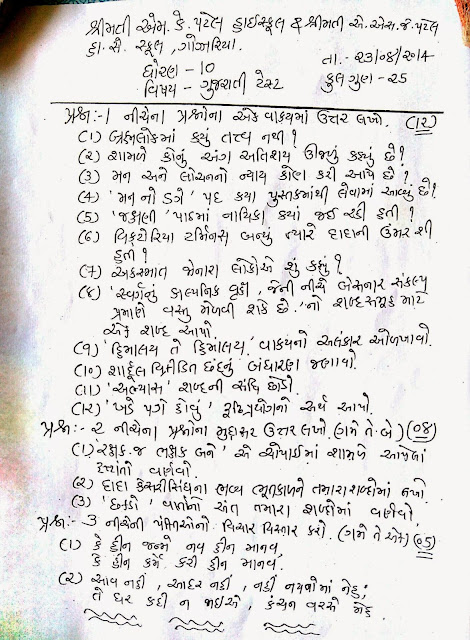 શ્રીમતી એમ. કે. પટેલ હાઈસ્કૂલ & શ્રીમતી એ. એસ. જે. પટેલ
હા. સે. સ્કૂલ, ગોઝારિયા.
તા. - ૨૩/૦૪/૨૦૧૪
ધોરણ - 10
કુલ ગુણ - ૨૫
વિષય - ગુજરાતી ટેસ્ટ
પ્રશ્ન:-૧ નીચેના પ્રશ્નોના એક વાક્યમાં ઉત્તર લખો. (૧૨)
(૧) બ્રહ્મલોકમાં કયું તત્ત્વ નથી ?
(૨) શામળે કોનું અંગ અતિશય ઊજળું કહ્યું છે ?
(૩) મન અને લોચનનો ન્યાય કોણ કરી આપે છે ?
(૪) 'મન નો ડગે' પદ કયા પુસ્તકમાંથી લેવામાં આવ્યું છે ?
(૫) 'જક્ષણી' પાઠમાં નાયિકા ક્યાં જઈ રહી હતી ?
(૬) વિક્ટોરિયા ટર્મિનસ બન્યું ત્યારે દાદાની ઉંમર શી
હતી ?
(૭) અકસ્માત જોનારા લોકોએ શું કહ્યું ?
(૮) 'સ્વર્ગનું કાલ્પનિક વૃક્ષ, જેની નીચે બેસનાર સંકલ્પ
પ્રમાણે વસ્તુ મેળવી શકે છે.'નો શબ્દસમૂહ માટે
એક શબ્દ આપો.
(૯) 'હિમાલય તે હિમાલય.' વાક્યનો અલંકાર ઓળખાવો.
(૧૦) શાર્દૂલ વિક્રીડિત છંદનું બંધારણ જણાવો.
(૧૧) 'અભ્યાસ' શબ્દની સંધિ છોડો.
(૧૨) 'ખડે પગે હોવું' રૂઢિપ્રયોગનો અર્થ આપો.
પ્રશ્ન:-૨ નીચેના પ્રશ્નોના મુદ્દાસર ઉત્તર લખો. (ગમે તે બે) (૦૪)
(૧) 'રક્ષક જ ભક્ષક બને' એ ચોપાઈમાં શામળે આપેલાં
દૃષ્ટાંતો વર્ણવો.
(૨) દાદા કેસરીસિંઘના ભવ્ય ભૂતકાળને તમારા શબ્દોમાં લખો.
(૩) 'છકડો' વાર્તાનો અંત તમારા શબ્દોમાં વર્ણવો.
પ્રશ્ન:-૩ નીચેની પંક્તિઓનો વિચાર વિસ્તાર કરો. (ગમે તે એક) (૦૫)
(૧) કે હીન જન્મે નવ હીન માનવ,
કે હીન કર્મે કરી હીન માનવ.
(૨) આવ નહીં, આદર નહીં, નહીં નયનોમાં નેહ;
તે ઘર કદી ન જઈએ, કંચન વરસે મેહ.